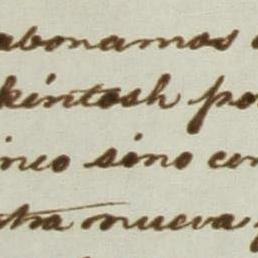 abonamos
kintosh po
inco sino con
tra nueva